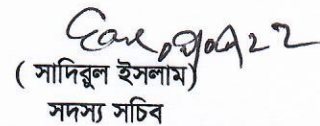 ( সাদিরুল ইসলাম)
সদস্য সচিব